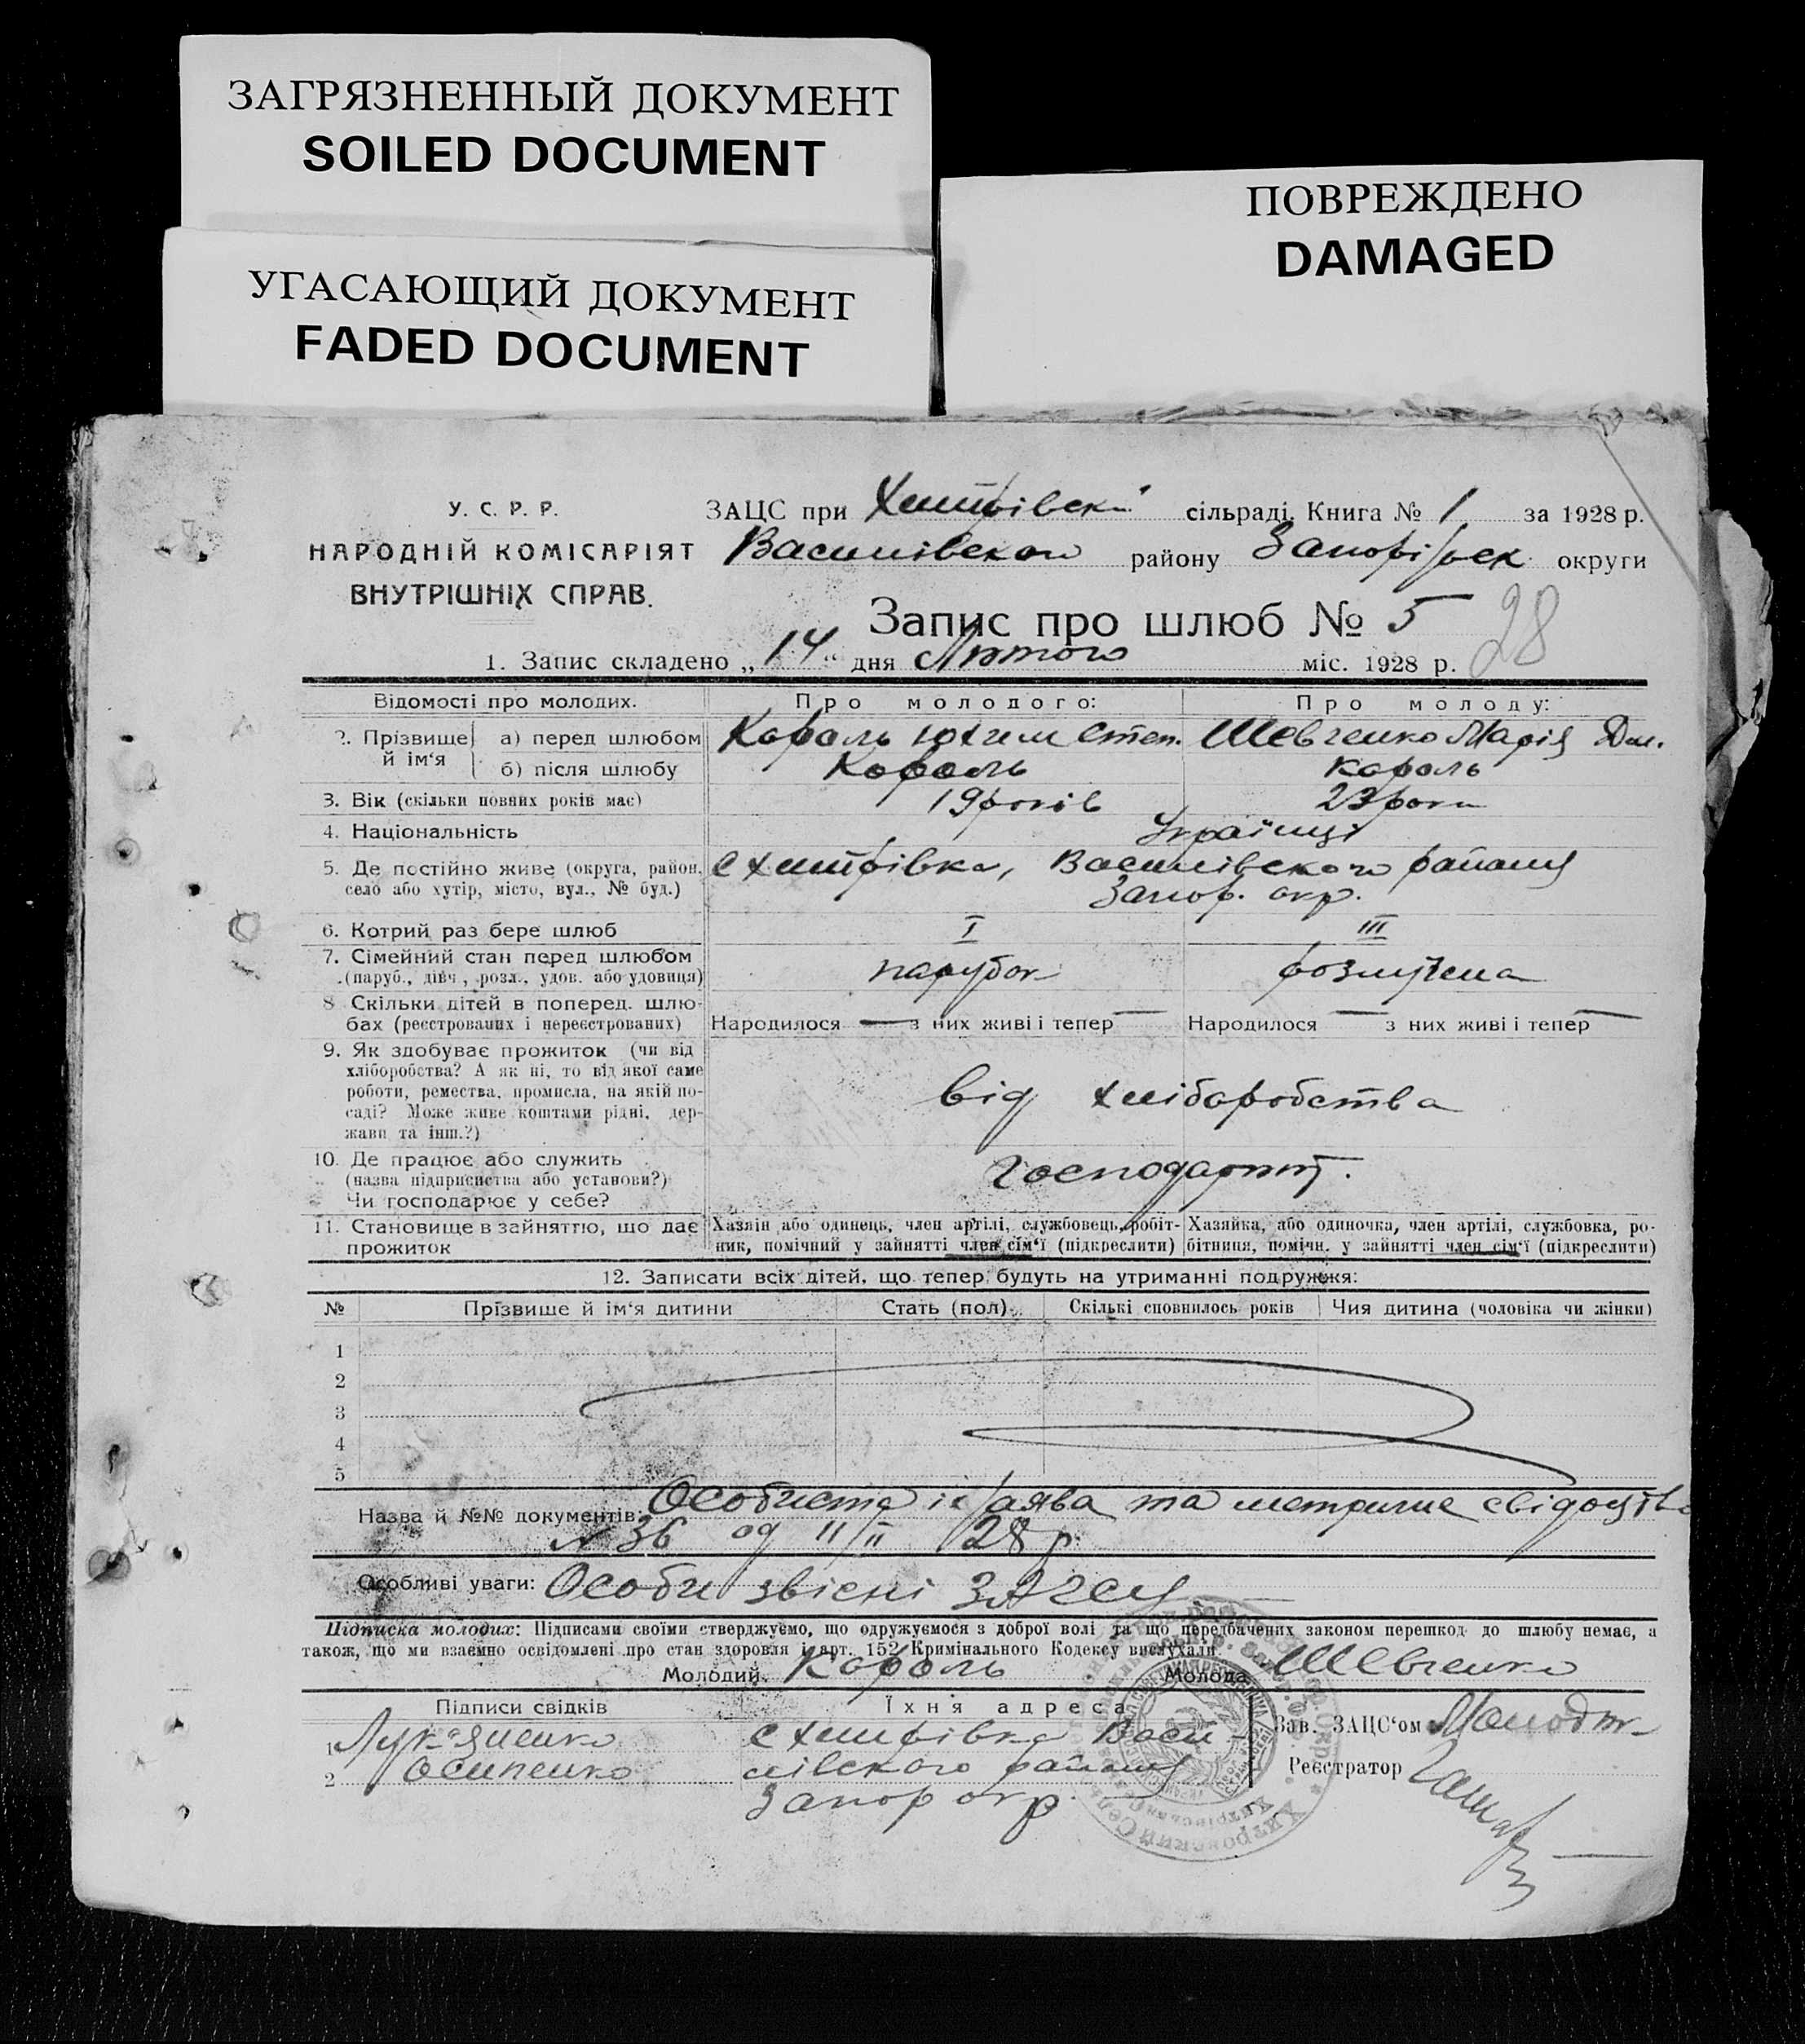 ЗАГРЯЗНЕННЫЙ ДОКУМЕНТ
SOILED DOCUMENT
ПОВРЕЖДЕНО
DAMAGED
УГАСАЮЩИЙ ДОКУМЕНТ
FADED DOCUMENT
У. С. Р. Р.
НАРОДНІЙ КОМІСАРІЯТ
ВНУТРІШНІХ СПРАВ.
ЗАЦС при Хитрівскі сільраді. Книга № 1 за 1928 р.
Василівского району Запоріжск округи
Запис про шлюб № 5 28
1. Запис складено „14“ дня Лютого міс. 1928 р.
Відомості про молодих. Про молодого: Про молоду:
2. Прізвище й ім'я а) перед шлюбом Король Юхим Степ. Шевченко Марія Дм.
б) після шлюбу Король Король
3. Вік (скільки повних років має) 19 років 23 роки
4. Національність Українці
5. Де постійно живе (округа, район, с Хитрівка, Василівского району
село або хутір, місто, вул., № буд.) Запор. окр.
6. Котрий раз бере шлюб I III
7. Сімейний стан перед шлюбом
(паруб., дівч., розл., удов. або удовиця) парубок розлучена
8 Скільки дітей в поперед. шлю-
бах (реєстрованих і нереєстрованих) Народилося — з них живі і тепер — Народилося — з них живі і тепер —
9. Як здобуває прожиток (чи від
хліборобства? А як ні, то від якої саме
роботи, ремества, промисла, на якій по-
саді? Може живе коштами рідні, дер-
жави та інш.?)
від хліборобства
10. Де працює або служить
(назва підприємства або установи?)
Чи господарює у себе?
господарют.
11. Становище в зайняттю, що дає
прожиток
Хазяін або одинець, член артілі, службовець, робіт-
ник, помічний у зайнятті член сім'ї (підкреслити)
Хазяйка, або одиночка, член артілі, службовка, ро-
бітниця, помічн. у зайнятті член сім'ї (підкреслити)
12. Записати всіх дітей, що тепер будуть на утриманні подружжя:
№ Прізвище й ім'я дитини Стать (пол) Скількі сповнилось років Чия дитина (чоловіка чи жінки)
1
2
3
4
5
Назва й №№ документів: Особиста іх заява та метричне свідоцтво
№ 36 од 11/II 28 р.
Особливі уваги: Особи звісні ЗАГСу
Підписка молодих: Підписами своїми стверджуємо, що одружуємося з доброї волі та що передбачених законом перешкод до шлюбу немає, а
також, що ми взаємно освідомлені про стан здоровля і арт. 152 Кримінального Кодексу вислухали.
Молодий. Король Молода Шевченко
Підписи свідків Їхня адреса
1 Лукяненко с Хитрівка Васи-
2 Осипенко лівского району
Запор окр.
Зав. ЗАЦС'ом
Реєстратор